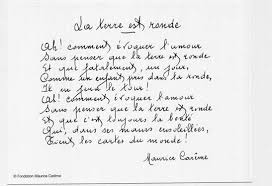 La terre est ronde
Oh! comment évoquer l'amour
Sans penser que la terre est ronde
Et que fatalement, un jour,
Comme un enfant pris dans la ronde,
Il en fera le tour!
Oh! comment évoquer l'amour
Sans penser que la terre est ronde
Et que c'est toujours la bonté
Qui, dans ses mains ensoleillées,
Tient les cartes du monde!
Maurice Carême
© Fondation Maurice Carême